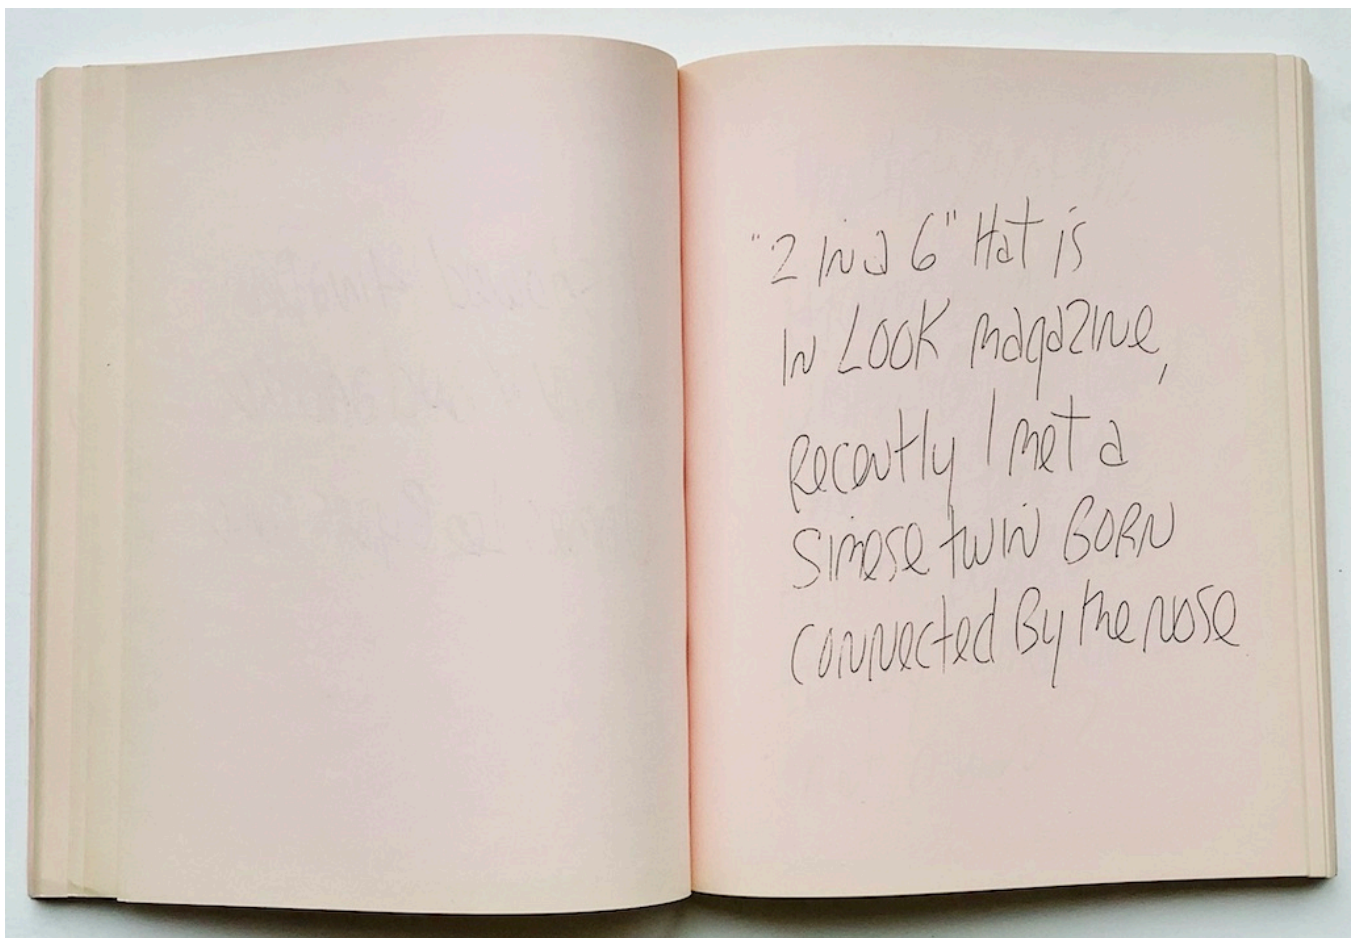 "2 IN a 6" Hat is
IN LOOK magazine,
Recently I met a
Simese twin BORN
connected By the nose